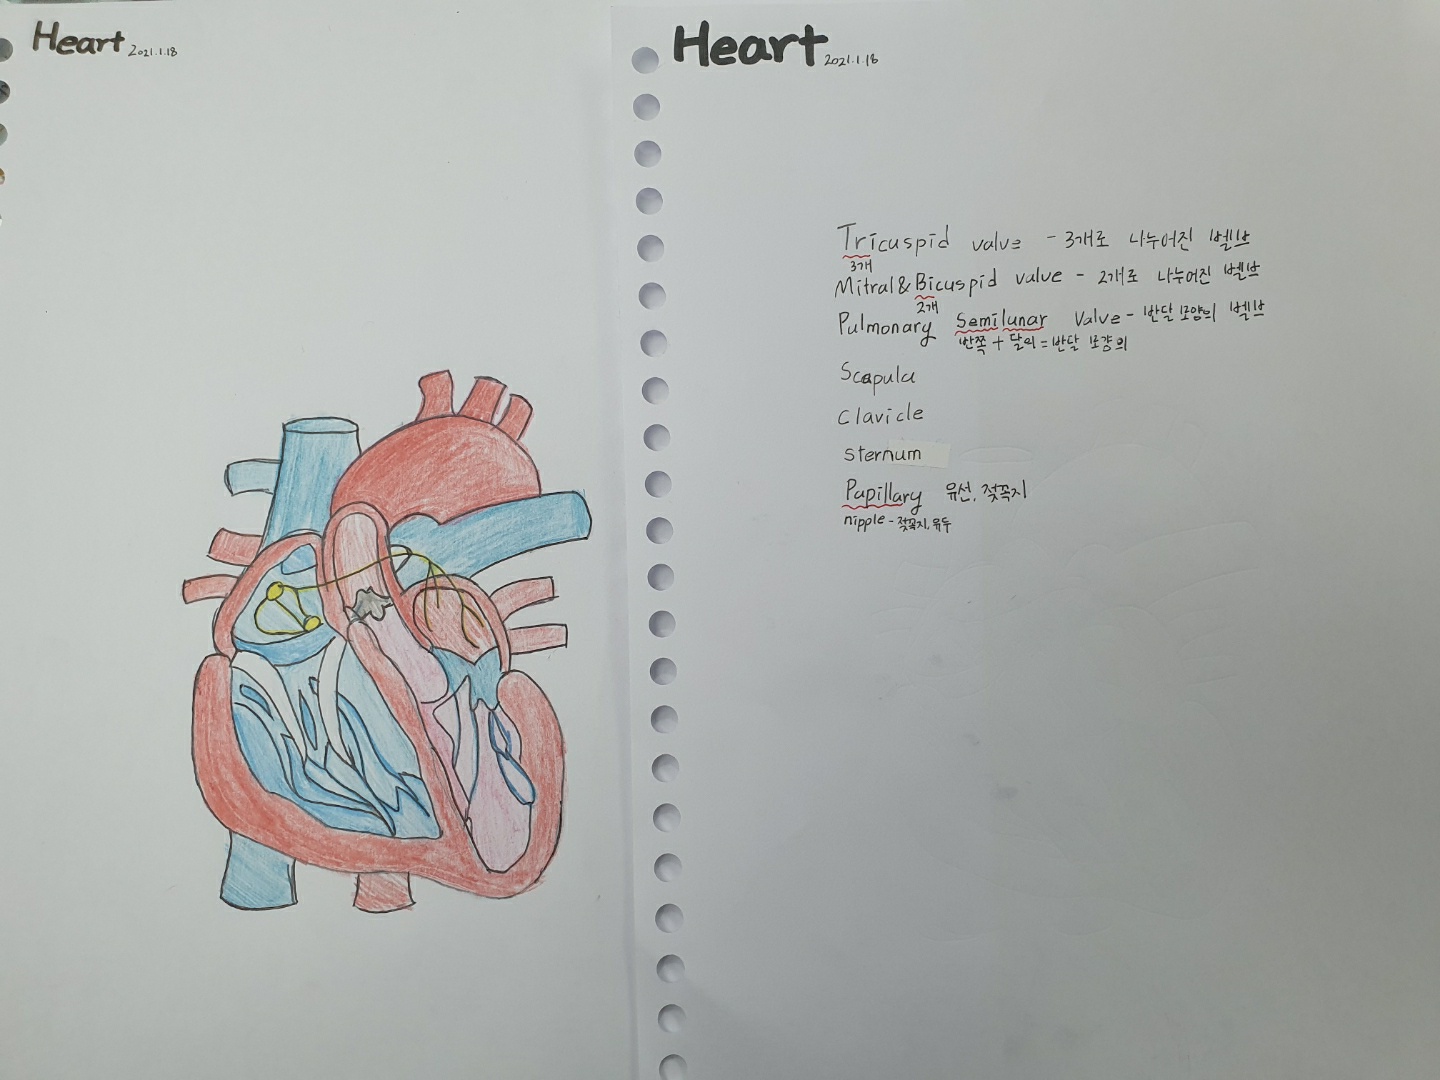 Heart 2021.1.18
Heart 2021.1.18
Tricuspid valve - 3개로 나누어진 벨브
3개
Mitral & Bicuspid valve - 2개로 나누어진 벨브
2개
Pulmonary Semilunar Valve - 반달 모양의 벨브
반쪽 + 달의 = 반달 모양의
Scapula
Clavicle
Sternum
Papillary 유선, 젖꼭지
nipple - 젖꼭지, 유두